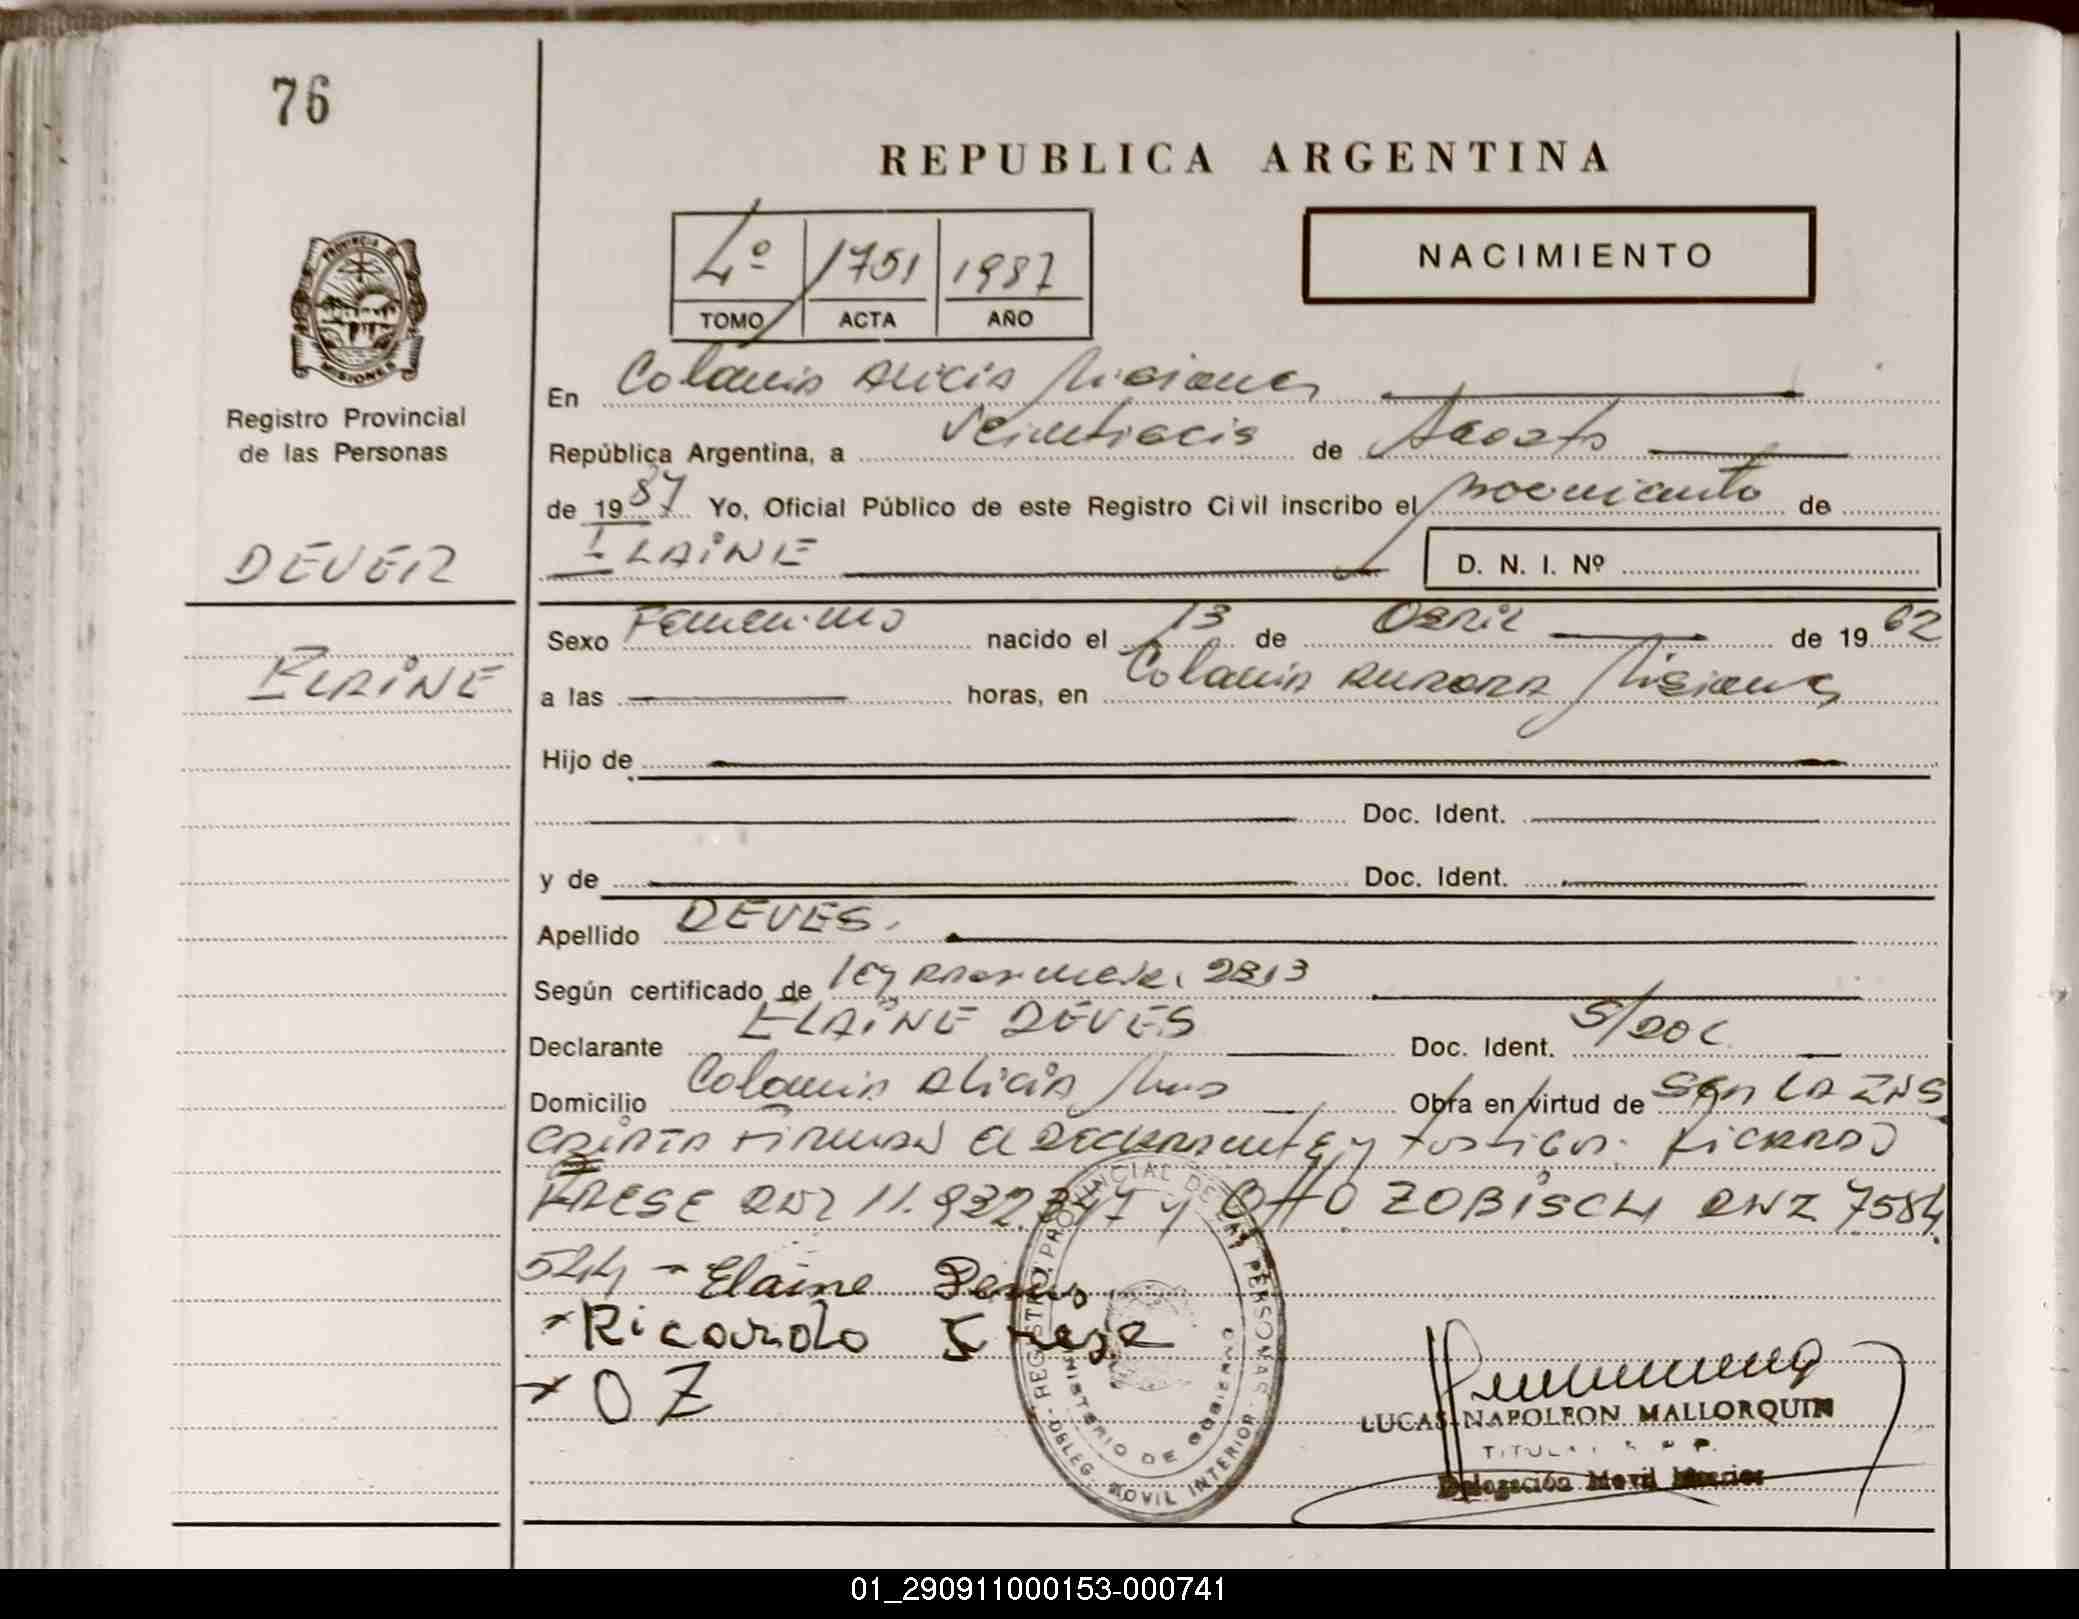 76
REPUBLICA ARGENTINA
4º 1751 1987
TOMO ACTA AÑO
NACIMIENTO
PROVINCIA DE
MISIONES
Registro Provincial
de las Personas
En Colonia Alicia Misiones
República Argentina, a Veintiseis de Agosto
de 1987 Yo, Oficial Público de este Registro Civil inscribo el nacimiento de
ELAINE
D. N. I. Nº
DEVES
ELAINE
Sexo Femenino nacido el 13 de Abril de 1962
a las horas, en Colonia Aurora Misiones
Hijo de
Doc. Ident.
y de Doc. Ident.
Apellido DEVES.
Según certificado de ley 2813
Declarante ELAINE DEVES Doc. Ident. S/DOC
Domicilio Colonia Alicia Mns Obra en virtud de
firman el declarante y testigos: RICARDO
KRESE DNI 11.932.347 y OTTO ZOBISCH DNI 7584
544 - Elaine Deves
Ricardo Krese
OZ
REGISTRO PROVINCIAL DE LAS PERSONAS - DELEG. MOVIL INTERIOR -
MINISTERIO DE GOBIERNO
LUCAS NAPOLEON MALLORQUIN
TITULAR
Delegación Movil Interior
01_290911000153-000741